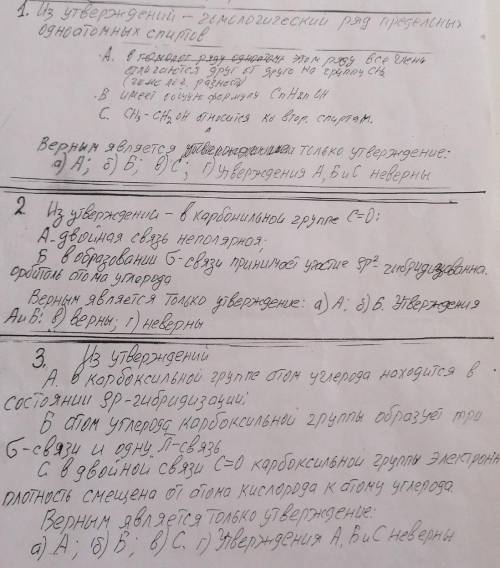 1. Из утверждений - гомологический ряд предельных
одноатомных спиртов
А. в этом ряду все члены
отличаются друг от друга на группу CH₂
(гомолог. разность)
В имеет общую формулу CnH2nOH
С. CH₃-CH₂OH относится ко втор. спиртам.
Верным является только утверждение:
а) А; б) Б; в) С; г) Утверждения А, Б и С неверны
2 Из утверждений - в карбонильной группе C=O:
А-двойная связь неполярная;
Б в образовании σ-связи принимает участие SP²-гибридизованна.
орбиталь атома углерода
Верным является только утверждение: а) А; б) Б. Утверждения
А и Б: в) верны; г) неверны
3. Из утверждений
А. в карбоксильной группе атом углерода находится в
состоянии SP-гибридизации;
Б атом углерода карбоксильной группы образует три
σ-связи и одну π-связь
С в двойной связи C=O карбоксильной группы электронн
плотность смещена от атома кислорода к атому углерода.
Верным является только утверждение:
а) А; б) Б; в) С. г) Утверждения А, Б и С неверны.